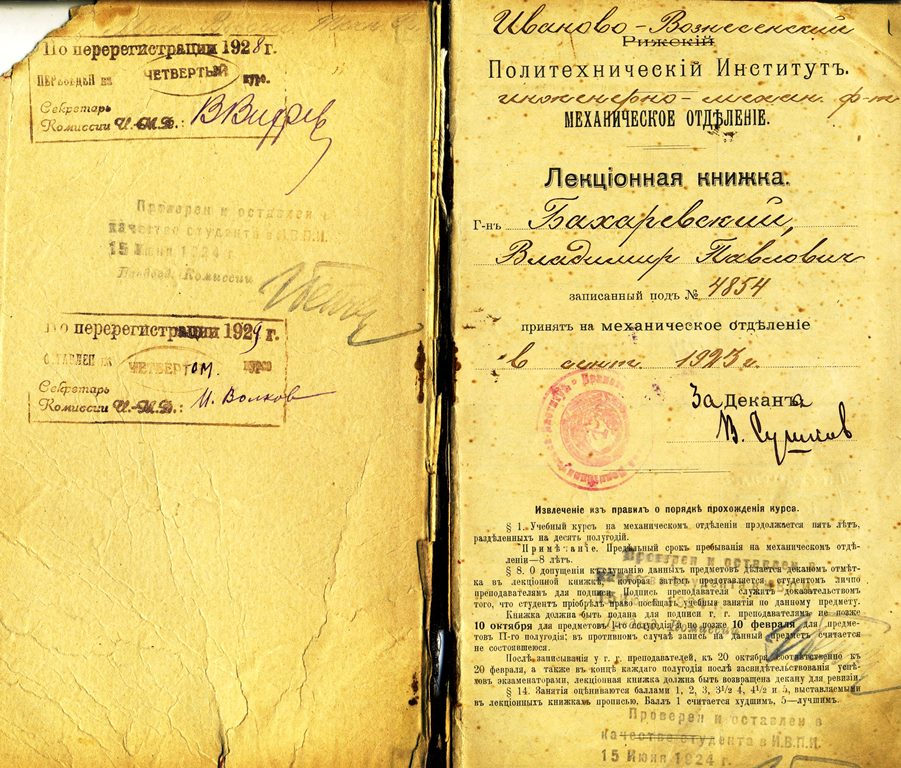 По перерегистрации 1928 г.
ПЕРЕВЕДЕН на ЧЕТВЕРТЫЙ курс.
Секретарь
Комиссии И.-М.Ф.:
Проверен и оставлен в
качестве студента в И.В.П.И.
15 Июня 1924 г.
Комиссии
По перерегистрации 1929 г.
ОСТАВЛЕН на ЧЕТВЕРТОМ курсе
Секретарь
Комиссии И.-М.Ф.: И. Волков
Иваново-Вознесенский
Рижскій
Политехническій Институтъ.
инженерно-механ. ф-т
МЕХАНИЧЕСКОЕ ОТДѢЛЕНІЕ.
Лекціонная книжка.
Г-нъ Бахаревский,
Владимир Павлович
записанный подъ № 4854
принятъ на механическое отдѣленіе
в сент. 1923 г.
За Деканъа
Извлеченіе изъ правилъ о порядкѣ прохожденія курса.
§ 1. Учебный курсъ на механическомъ отдѣленіи продолжается пять лѣтъ,
раздѣленныхъ на десять полугодій.
Примѣчаніе. Предѣльный срокъ пребыванія на механическомъ отдѣ-
леніи—8 лѣтъ.
§ 8. О допущеніи къ слушанію данныхъ предметовъ дѣлается деканомъ отмѣт-
ка въ лекціонной книжкѣ, которая затѣмъ представляется студентомъ лично
преподавателямъ для подписи. Подпись преподавателя служитъ доказательствомъ
того, что студентъ пріобрѣлъ право посѣщать учебныя занятія по данному предмету.
Книжка должна быть подана для подписи г. г. преподавателямъ не позже
10 октября для предметовъ I-го полугодія и не позже 10 февраля для предме-
товъ II-го полугодія; въ противномъ случаѣ запись на данный предметъ считается
не состоявшеюся.
Послѣ записыванія у г. г. преподавателей, къ 20 октября соотвѣтственно къ
20 февраля, а также въ концѣ каждаго полугодія послѣ засвидѣтельствованія успѣ-
ховъ экзаменаторами, лекціонная книжка должна быть возвращена декану для ревизіи.
§ 14. Занятія оцѣниваются баллами 1, 2, 3, 3½ 4, 4½ и 5, выставляемыми
въ лекціонныхъ книжкахъ прописью. Баллъ 1 считается худшимъ, 5—лучшимъ.
Проверен и оставлен в
качестве студента в И.В.П.И.
Проверен и оставлен в
качестве студента в И.В.П.И.
15 Июня 1924 г.